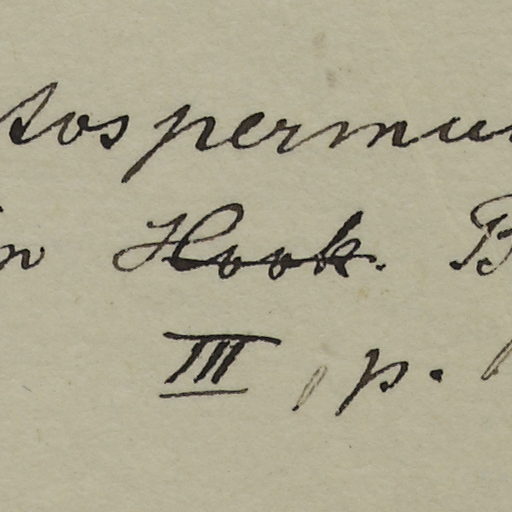 tospermu
in Hook. B
III, p.